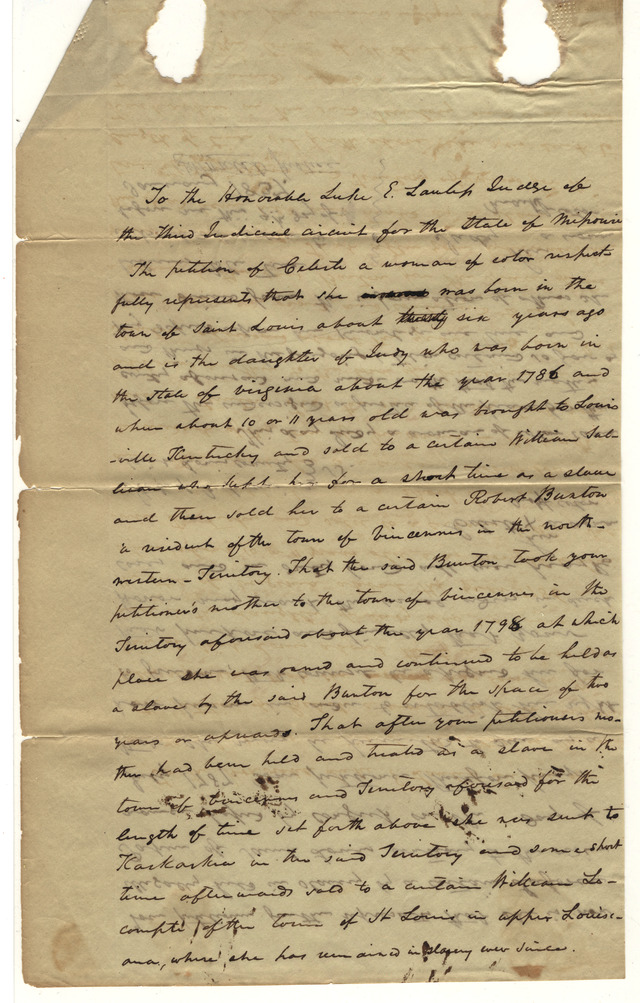 To the Honorable Luke E. Lawless Judge of
the third Judicial circuit for the State of Missouri
The petition of Celeste a woman of color respect-
fully represents that she was born in the
town of Saint Louis about thirty six years ago
and is the daughter of Judy who was born in
the state of virginia about the year 1786 and
when about 10 or 11 years old was brought to Louis
-ville Kentucky and sold to a certain William Sul-
livan who kept her for a short time as a slave
and then sold her to a certain Robert Bunton
a resident of the town of vincennes in the north-
western-Territory. That the said Bunton took your
petitioner's mother to the town of vincennes in the
Territory aforesaid about the year 1798 at which
place she was owned and continued to be held as
a slave by the said Bunton for the space of two
years or upwards. That after your petitioners mo-
ther had been held and treated as a slave in the
town of vincennes and Territory aforesaid for the
length of time set forth above she was sent to
Kaskaskia in the said Territory and some short
time afterwards sold to a certain William Le-
compte of the town of St Louis in upper Louisi-
ana, where she has remained in slavery ever since.